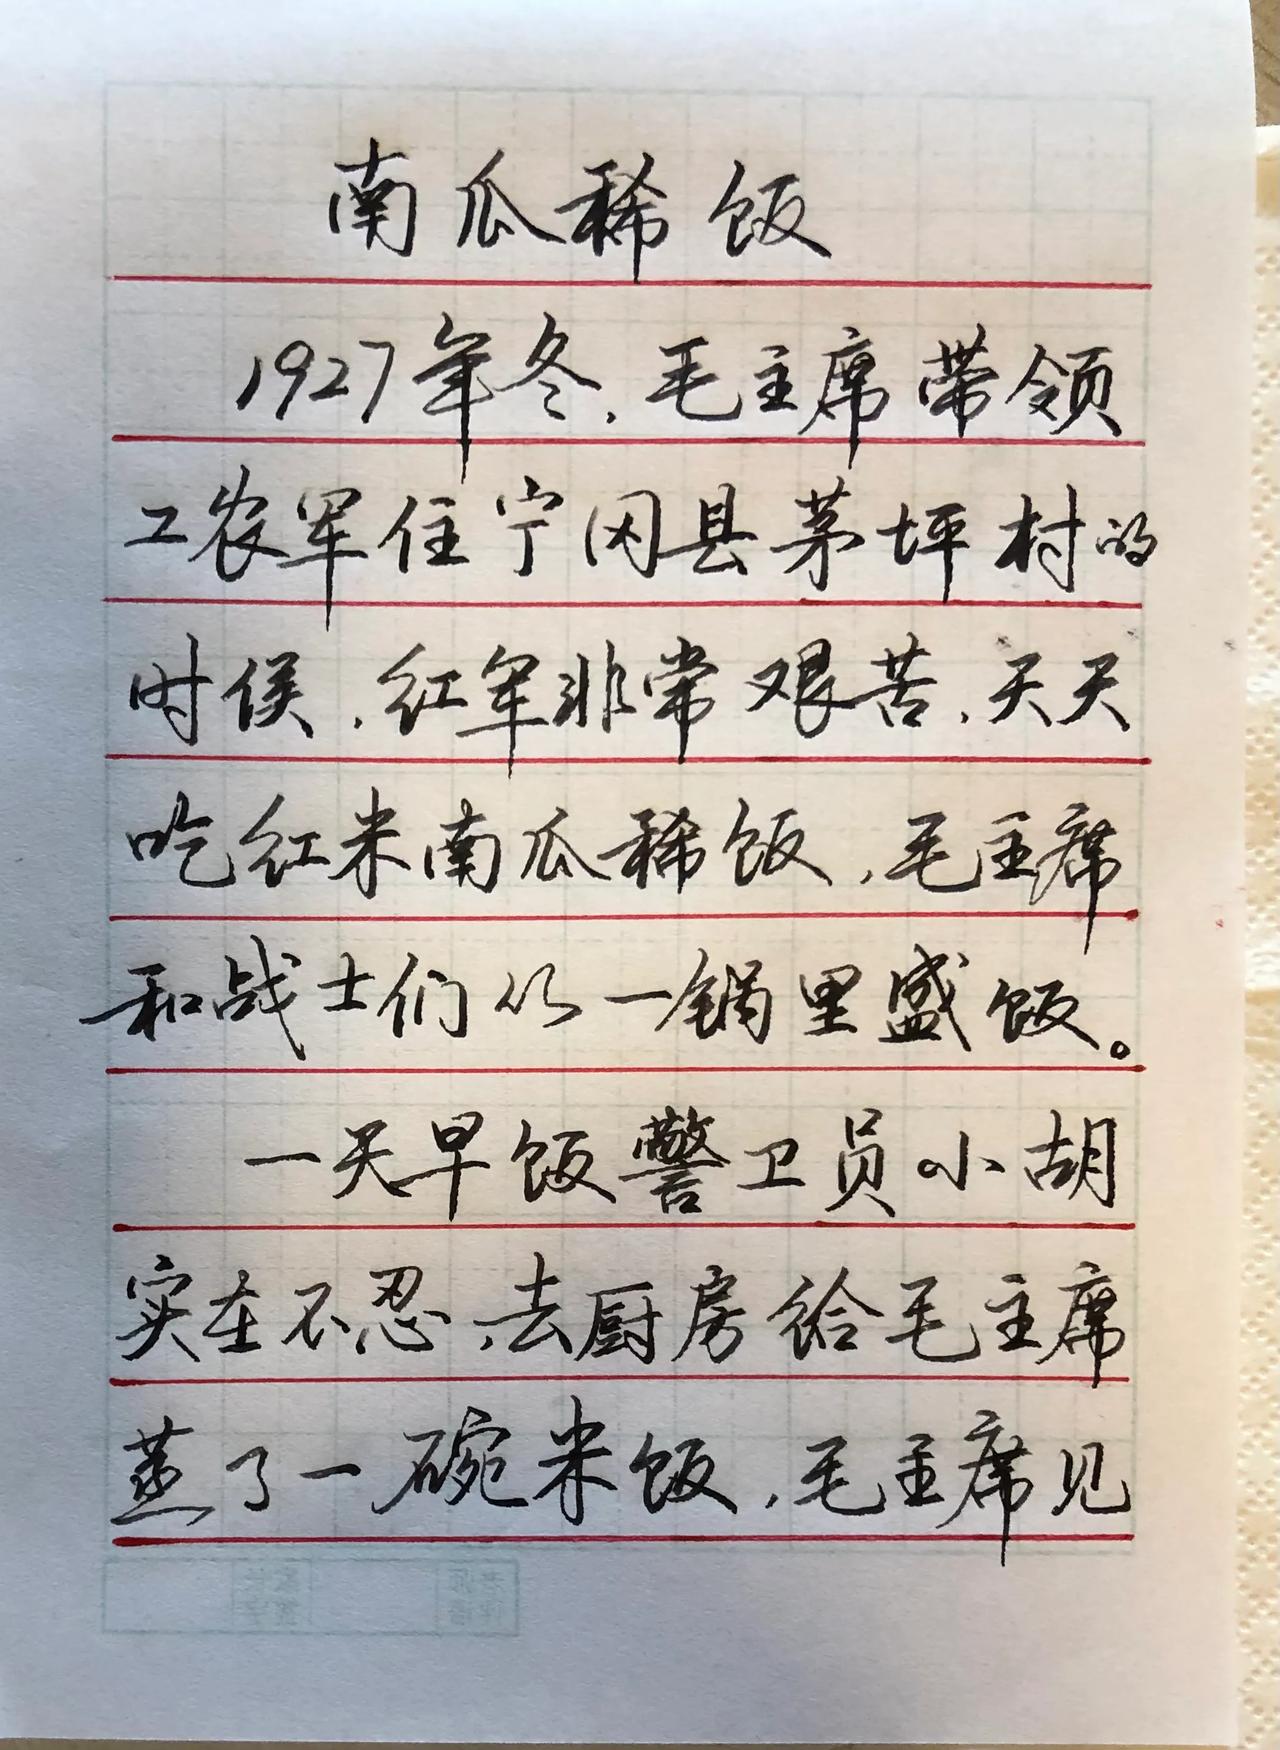 南瓜稀饭
1927年冬,毛主席带领
工农军住宁冈县茅坪村的
时候,红军非常艰苦,天天
吃红米南瓜稀饭,毛主席
和战士们从一锅里盛饭。
一天早饭警卫员小胡
实在不忍,去厨房给毛主席
蒸了一碗米饭,毛主席见